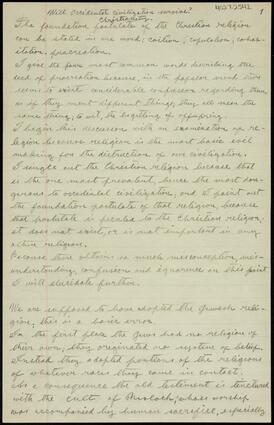 Will occidental civilization survive
Christianity.
1
The foundation postulate of the Christian religion
can be stated in one word, coition, copulation, cohab-
itation, procreation.
I give the four most common words describing the
act of procreation because, in the popular mind there
seems to exist considerable confusion regarding them
as if they meant different things; they all mean the
same thing, to wit, the begetting of offspring.
I begin this discussion with an examination of re-
ligion because religion is the most basic evil
making for the distruction of our civilization.
I single out the Christian religion because that
is the one most prevalent, hence the most dan-
gerous to occidental civilization, and I point out
the foundation postulate of that religion, because
that postulate is peculiar to the Christian religion,
it does not exist, or is not important in any
other religion.
Because there obtains so much misconception, mis-
understanding, confusion and ignorance on this point
I will elucidate further.
We are supposed to have adopted the Jewish reli-
gion, this is a basic error.
In the first place the Jews had no religion of
their own, they originated no system of belief.
Instead they adopted portions of the religions
of whatever races they came in contact.
As a consequence the old testament is tinctured
with the cult of Moloch, whose worship
was accompanied by human sacrifice, especially